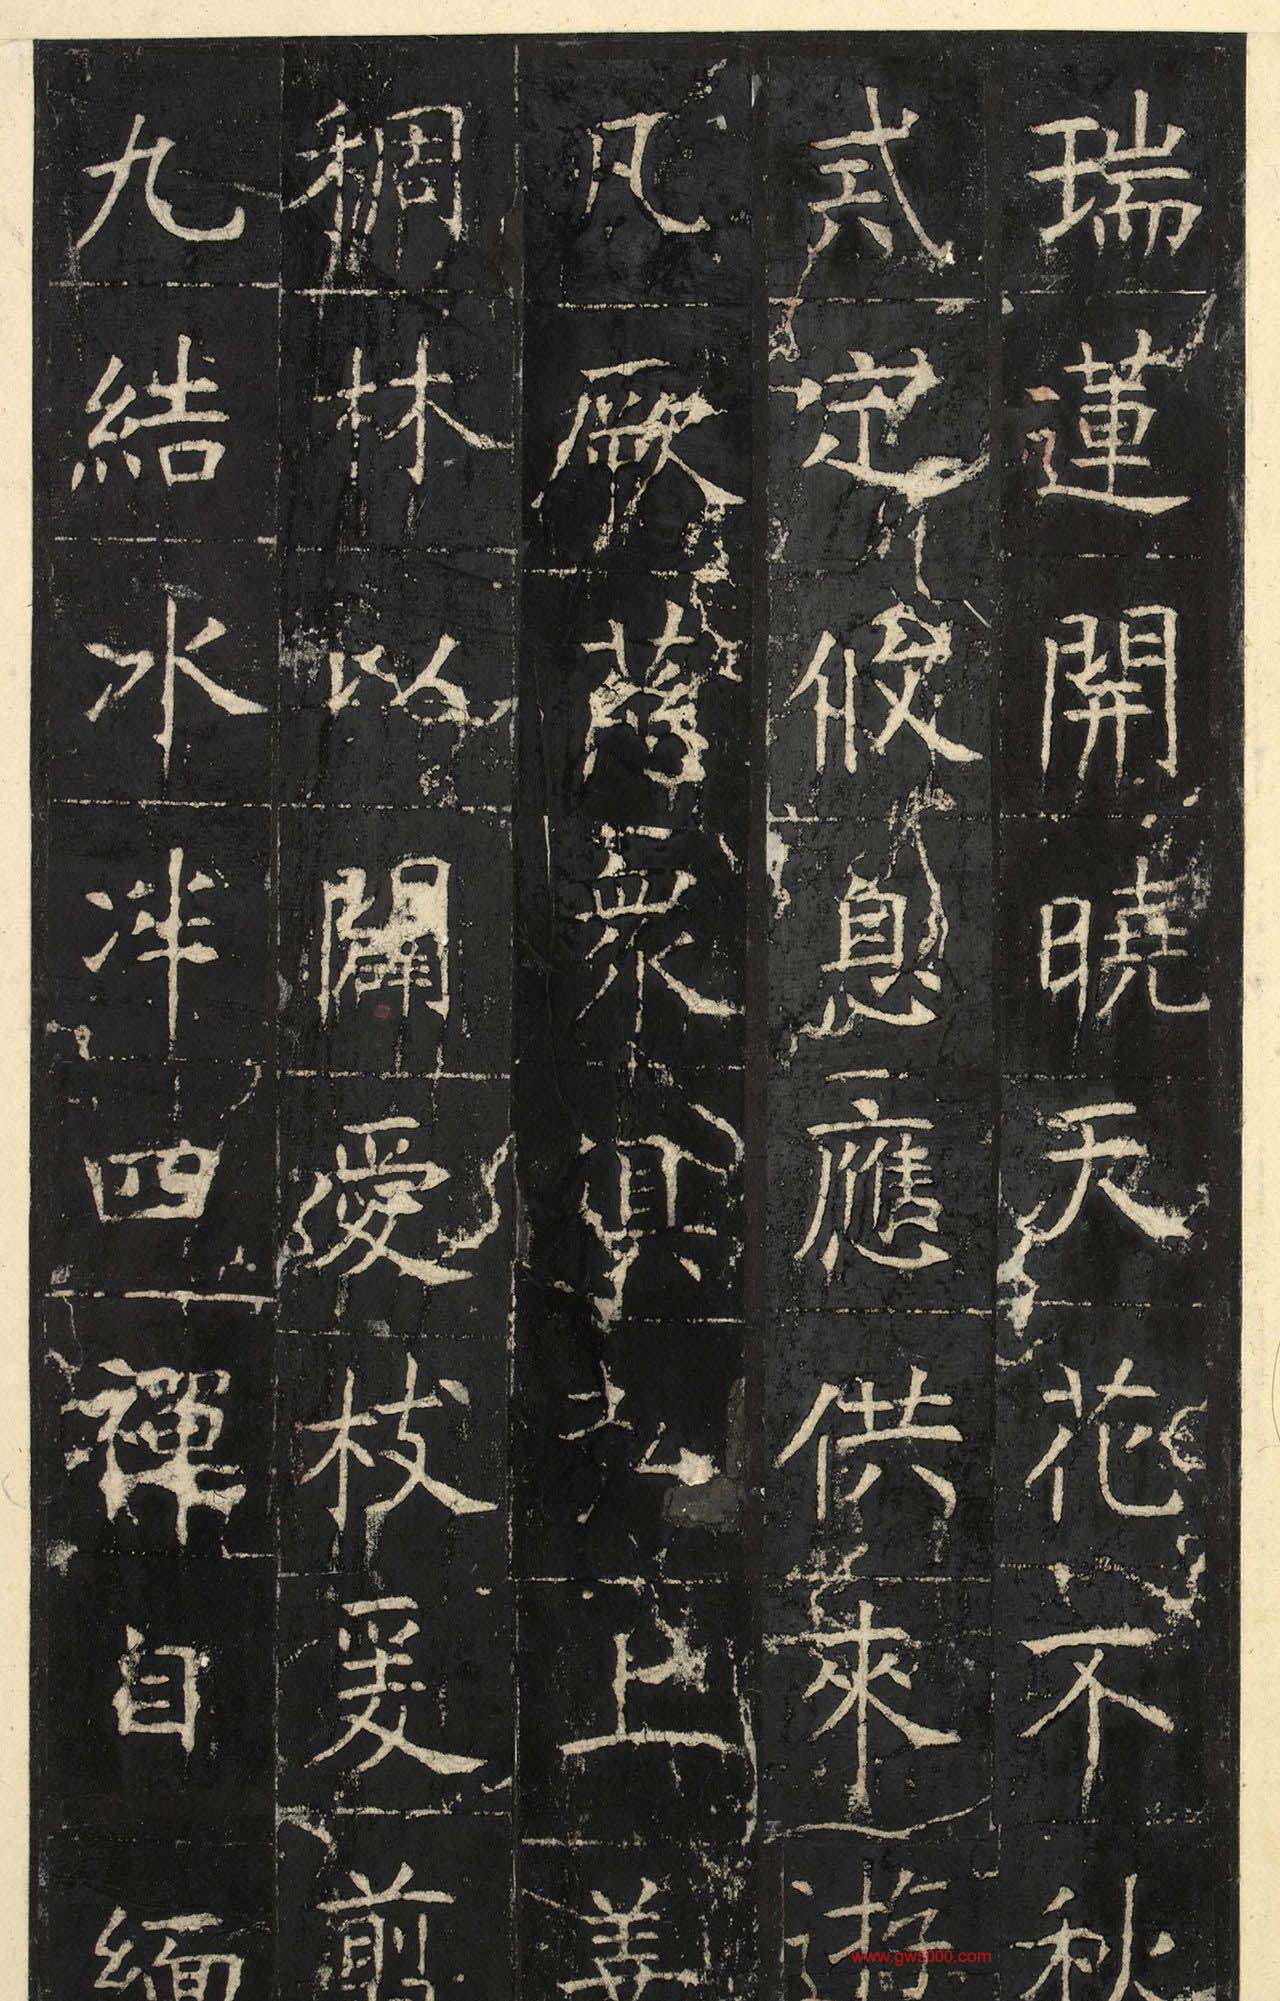 瑞蓮開曉天花不秋
貳定攸息應供來遊
凡厥蓴衆真𠫤上善
稠林以闢愛枝爰剪
九結氷泮四禪自緬
www.gws000.com